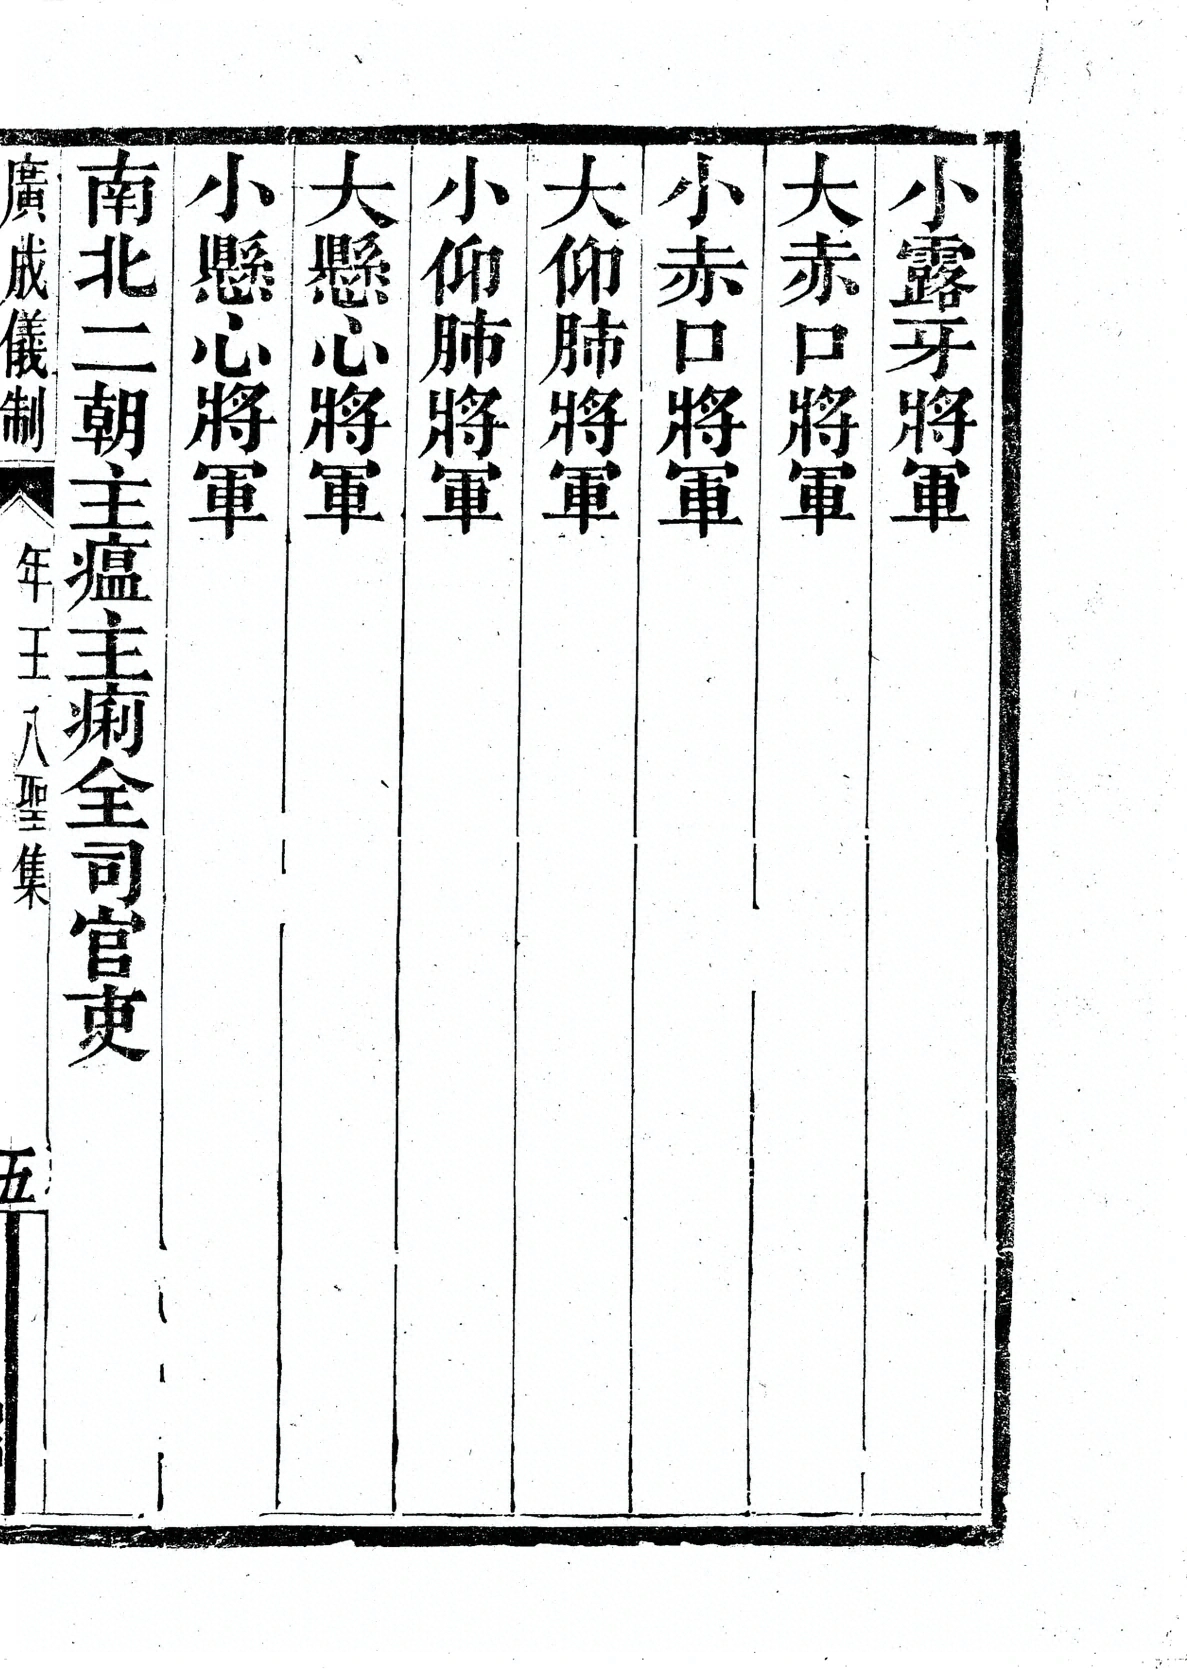 小露牙將軍
大赤口將軍
小赤口將軍
大仰肺將軍
小仰肺將軍
大懸心將軍
小懸心將軍
南北二朝主瘟主痢全司官吏
廣成儀制
年王八聖集
五